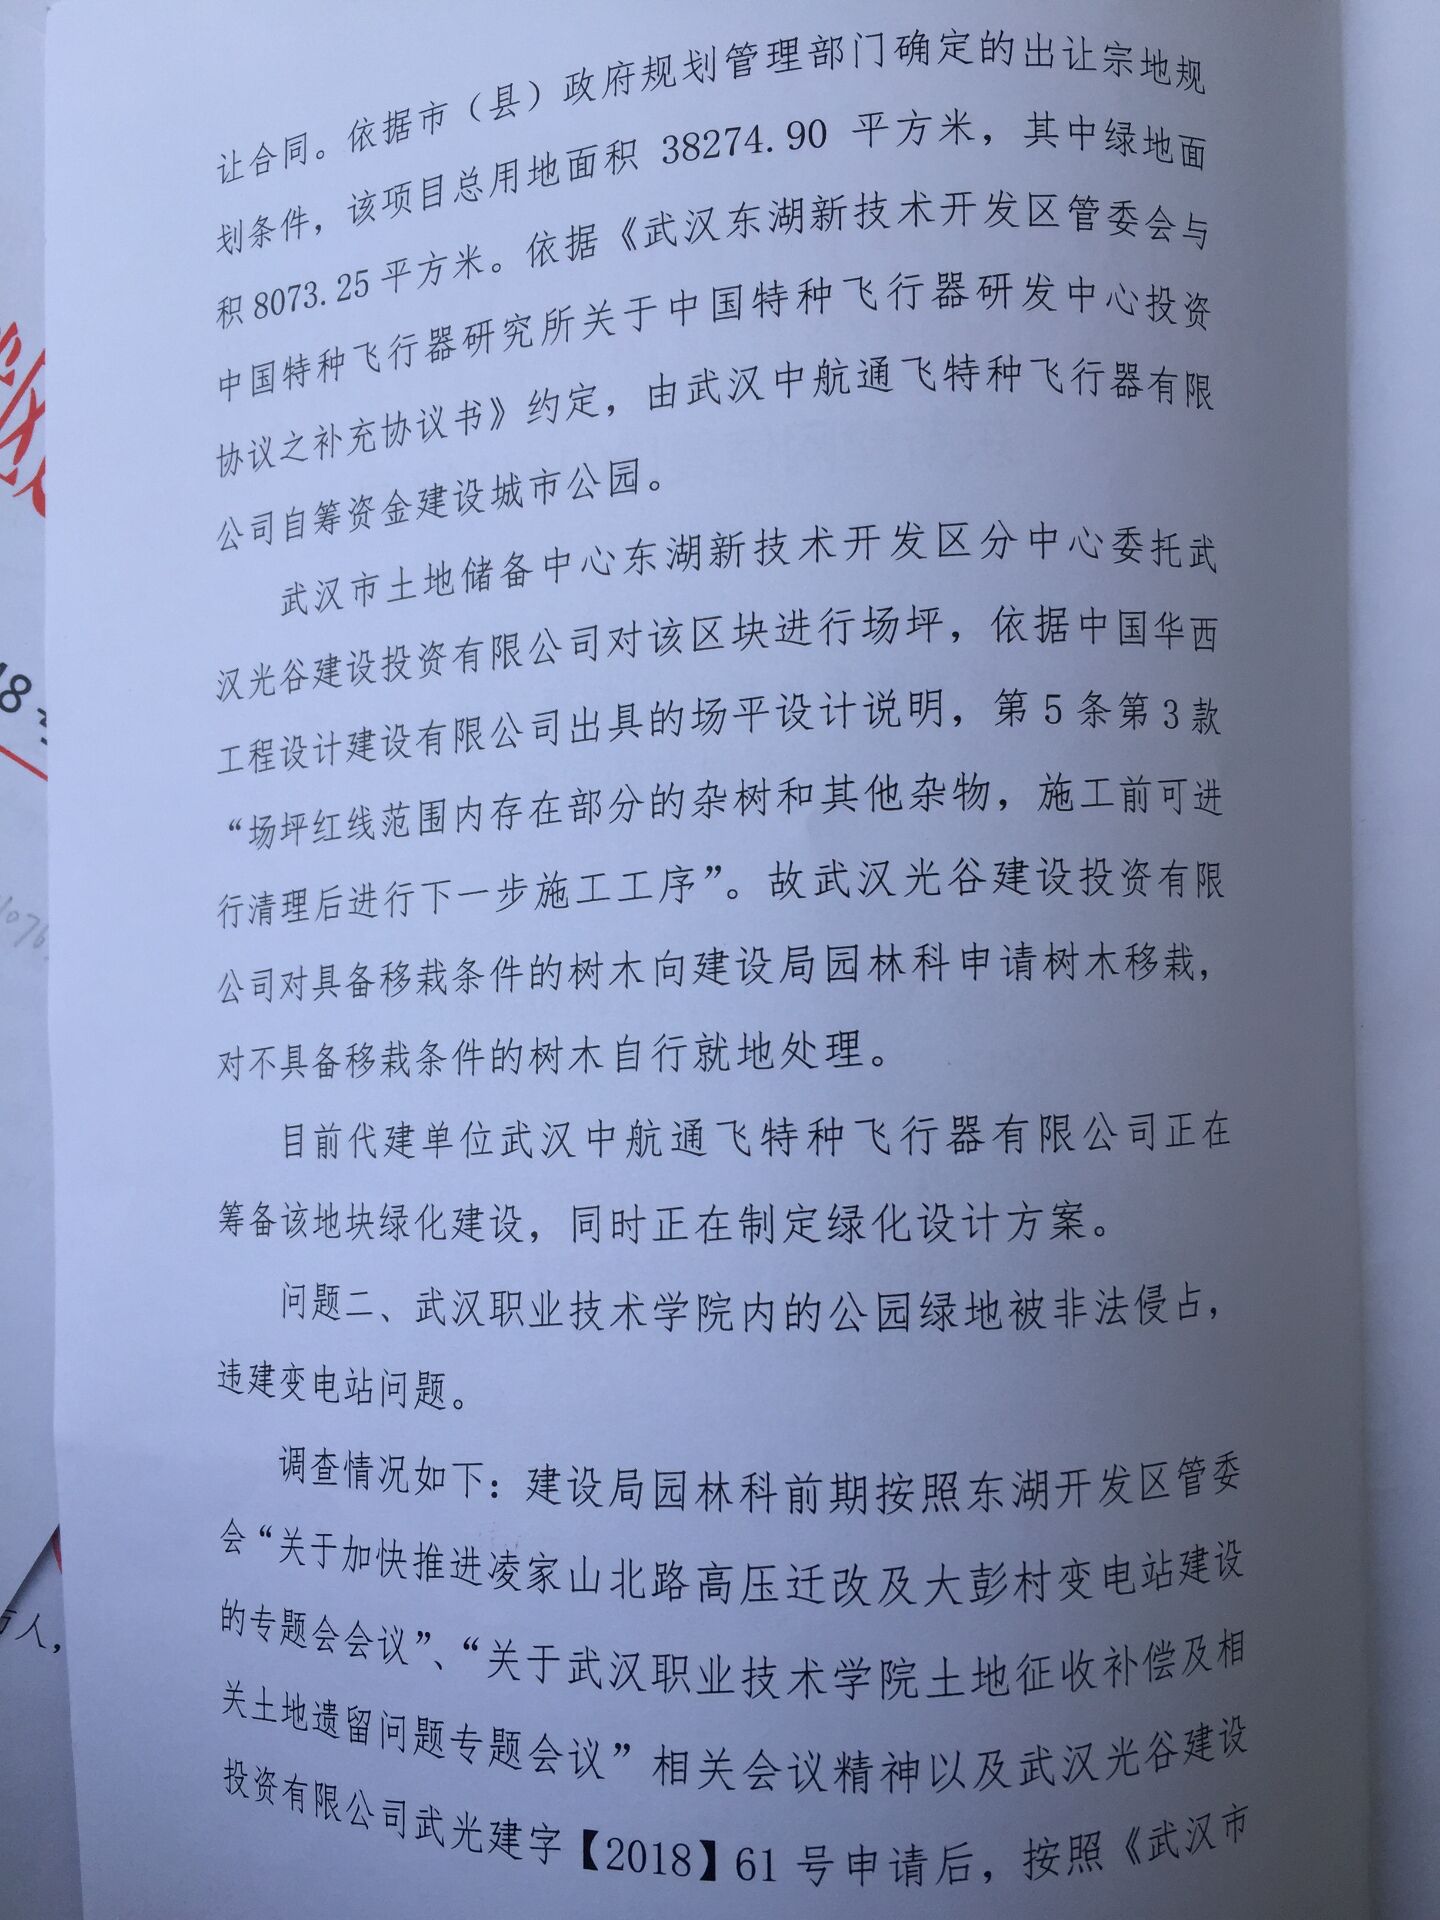 让合同。依据市（县）政府规划管理部门确定的出让宗地规
划条件，该项目总用地面积 38274.90 平方米，其中绿地面
积8073.25平方米。依据《武汉东湖新技术开发区管委会与
中国特种飞行器研究所关于中国特种飞行器研发中心投资
协议之补充协议书》约定，由武汉中航通飞特种飞行器有限
公司自筹资金建设城市公园。
武汉市土地储备中心东湖新技术开发区分中心委托武
汉光谷建设投资有限公司对该区块进行场坪，依据中国华西
工程设计建设有限公司出具的场平设计说明，第5条第3款
“场坪红线范围内存在部分的杂树和其他杂物，施工前可进
行清理后进行下一步施工工序”。故武汉光谷建设投资有限
公司对具备移栽条件的树木向建设局园林科申请树木移栽，
对不具备移栽条件的树木自行就地处理。
目前代建单位武汉中航通飞特种飞行器有限公司正在
筹备该地块绿化建设，同时正在制定绿化设计方案。
问题二、武汉职业技术学院内的公园绿地被非法侵占，
违建变电站问题。
调查情况如下：建设局园林科前期按照东湖开发区管委
会“关于加快推进凌家山北路高压迁改及大彭村变电站建设
的专题会会议”、“关于武汉职业技术学院土地征收补偿及相
关土地遗留问题专题会议”相关会议精神以及武汉光谷建设
投资有限公司武光建字【2018】61 号申请后，按照《武汉市